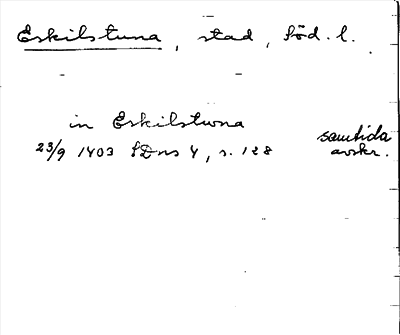 Eskilstuna, stad, Söd. l.
in Eskilstwna samtida
23/9 1403 SDns 4, s. 128 avskr.